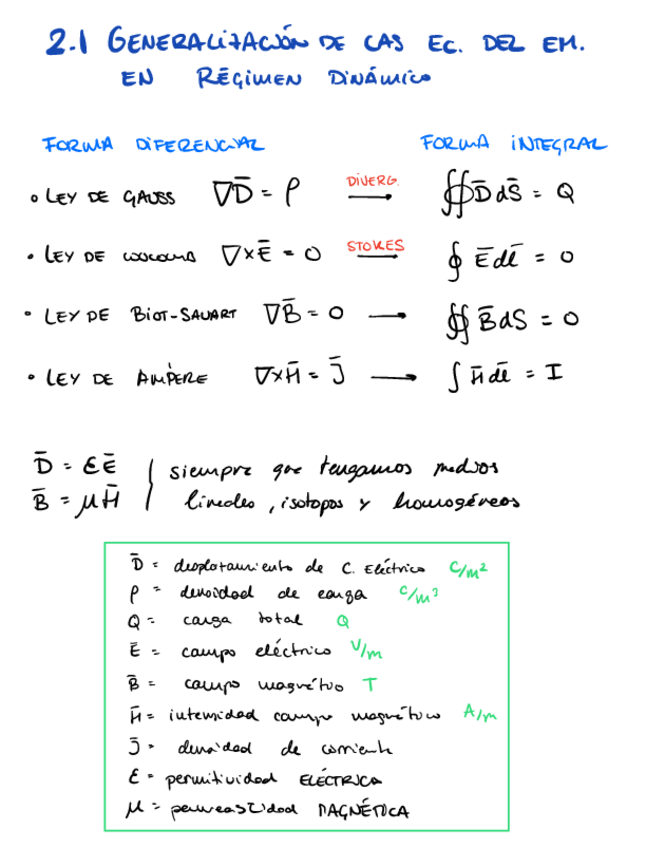 2.1 GENERALIZACIÓN DE LAS EC. DEL EM.
EN RÉGIMEN DINÁMICO
FORMA DIFERENCIAL FORMA INTEGRAL
• LEY DE GAUSS ∇D̄ = ρ DIVERG. → ∯ D̄ dS̄ = Q
• LEY DE COULOMB ∇×Ē = 0 STOKES → ∮ Ē dl̄ = 0
• LEY DE BIOT-SAVART ∇B̄ = 0 → ∯ B̄ dS = 0
• LEY DE AMPÈRE ∇×H̄ = J̄ → ∫ H̄ dl̄ = I
D̄ = εĒ
B̄ = μH̄
siempre que tengamos medios
lineales, isotopos y homogéneos
D̄ = desplazamiento de C. Eléctrico C/m²
ρ = densidad de carga C/m³
Q = carga total Q
Ē = campo eléctrico V/m
B̄ = campo magnético T
H̄ = intensidad campo magnético A/m
J̄ = densidad de corriente
ε = permitividad ELÉCTRICA
μ = permeabilidad MAGNÉTICA